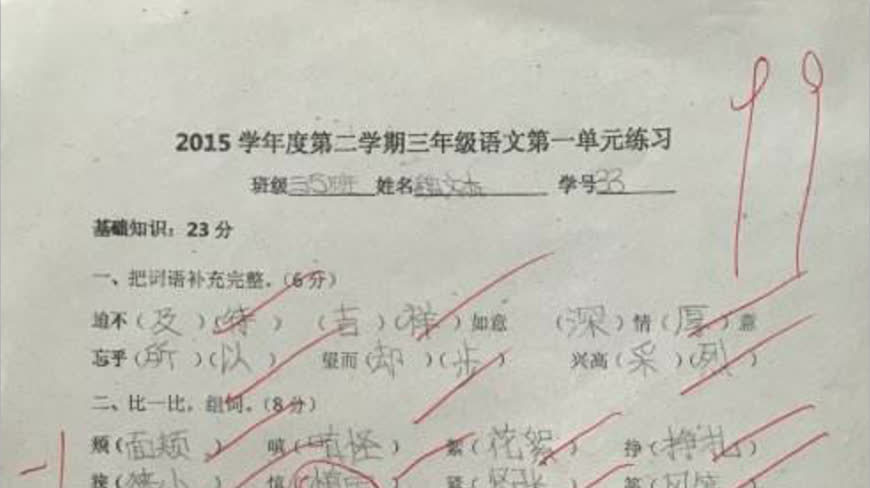 2015 学年度第二学期三年级语文第一单元练习
班级 三5班 姓名 学号 33
基础知识：23 分
一、把词语补充完整。（6 分）
迫不（及）（待） （吉）（祥）如意 （深）情（厚）意
忘乎（所）（以） 望而（却）（步） 兴高（采）（烈）
二、比一比，组词。（8 分）
颊（面颊） 嗔（嗔怪） 絮（花絮） 挣（挣扎）
-1 狭（狭小） 慎（ 紧（紧张 筝（风筝
99